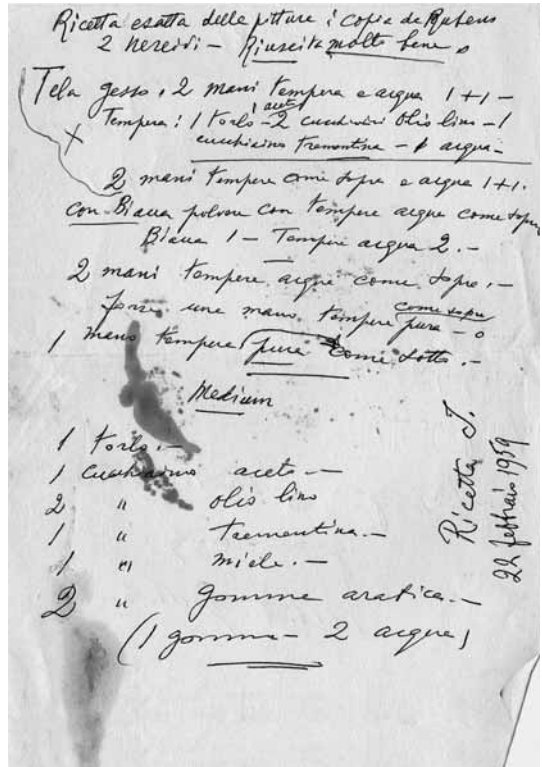 Ricetta esatta delle pitture : copia da Rubens
2 nereidi - Riuscita molto bene.
Tela gesso, 2 mani tempera e acqua 1+1 -
Tempera : 1 torlo - 1 aceto - 2 cucchiaini olio lino - 1
cucchiaino trementina - acqua -
2 mani tempera come sopra e acqua 1+1.
con Biacca polvere con tempera acqua come sopra
Biacca 1 - Tempera acqua 2. -
2 mani tempera acqua come sopra. -
forse una mano tempera pura - come sopra
1 mano tempera pura come sotto. -
Medium
1 torlo. -
1 cucchiaino aceto -
2 " olio lino
1 " trementina. -
1 " miele. -
2 " gomma arabica. -
(1 gomma - 2 acqua)
Ricetta J.
22 febbraio 1959